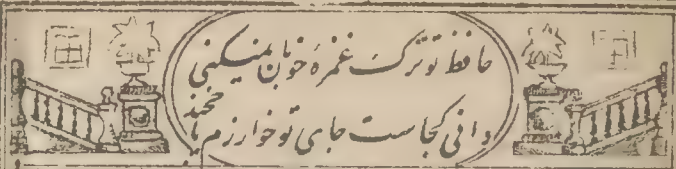 حافظ تو ترک غمزهٔ خوبان نمیکنی
دانی کجاست جای تو خوارزم یا خجند